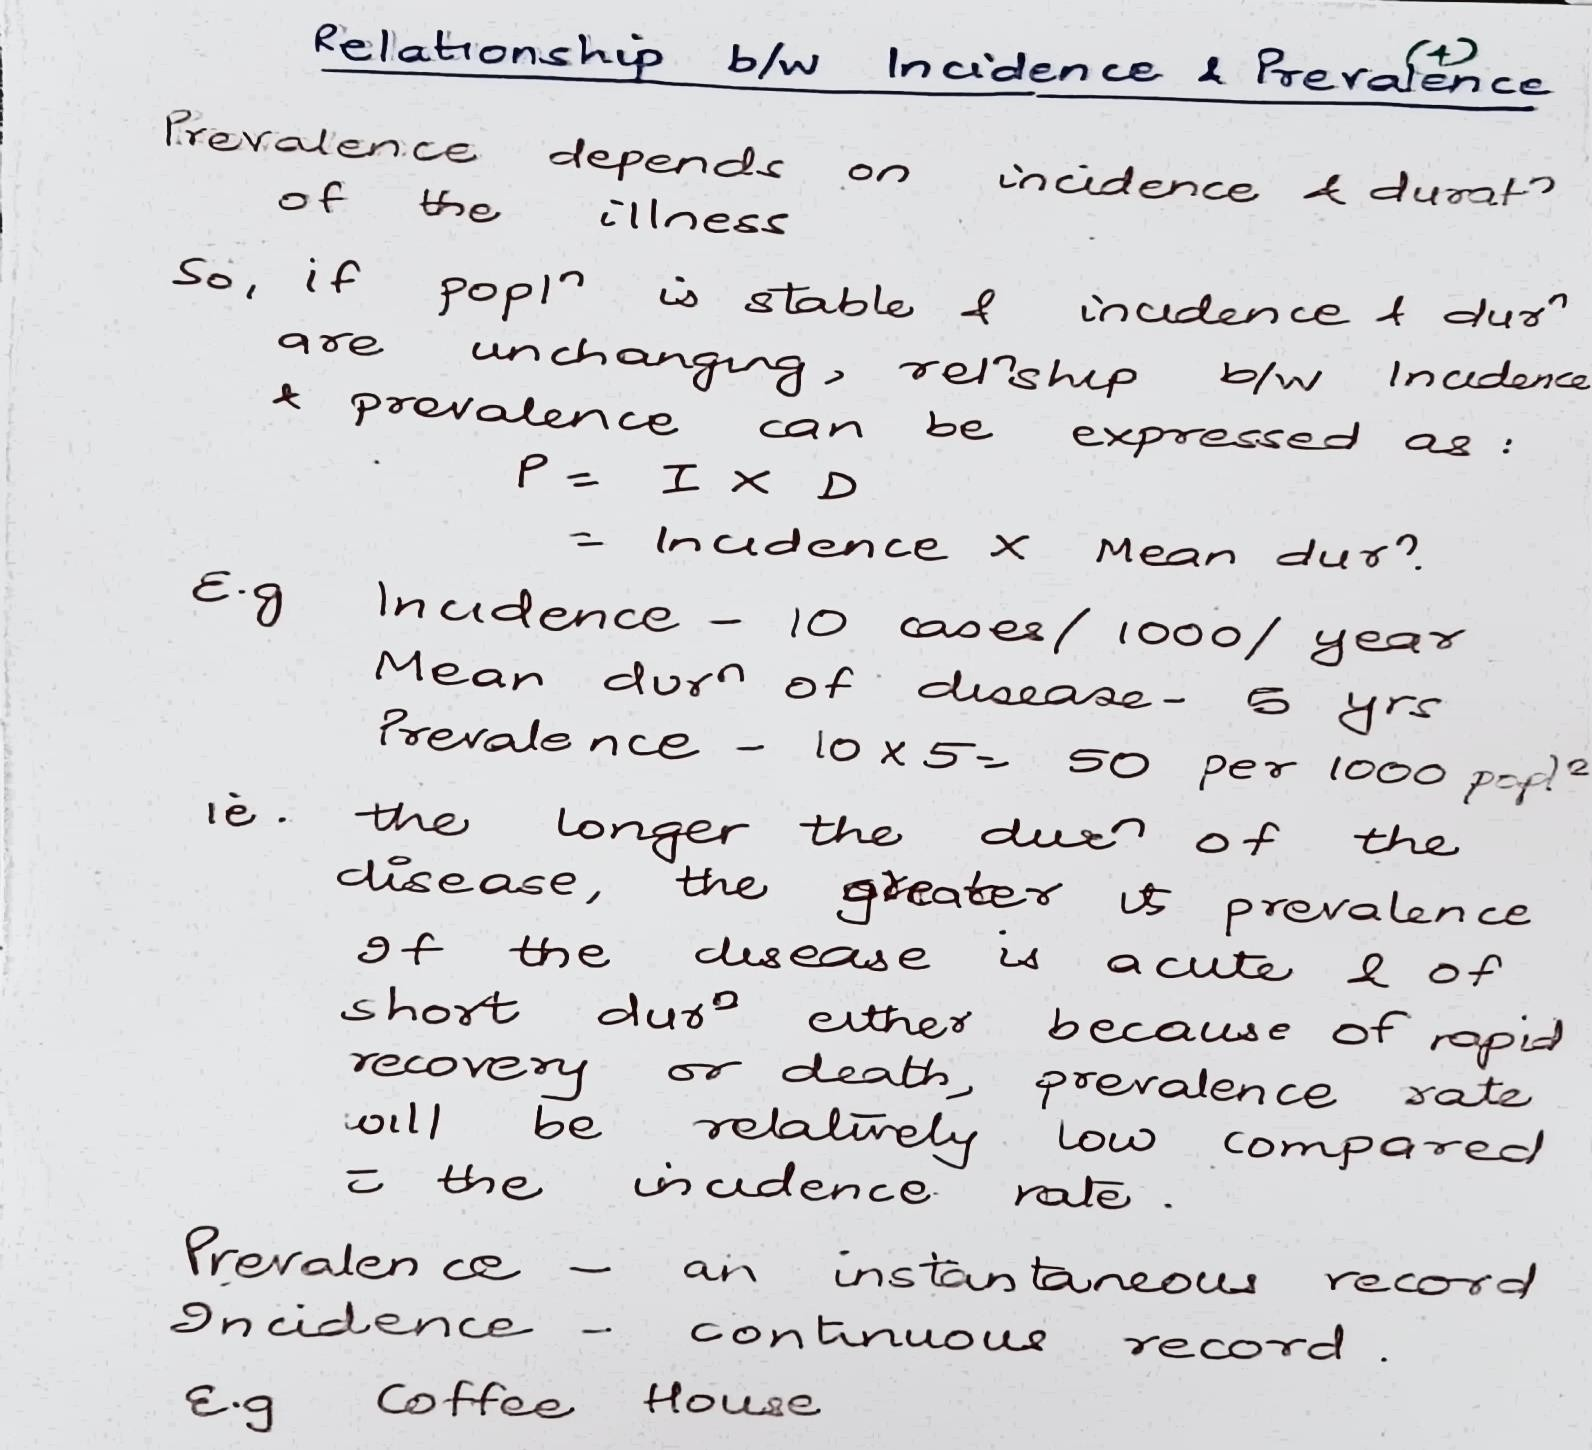 Relationship b/w Incidence & Prevalence
(4)
Prevalence depends on incidence & duratⁿ
of the illness
So, if poplⁿ is stable & incidence & durⁿ
are unchanging, relⁿship b/w Incidence
& prevalence can be expressed as :
P = I X D
= Incidence X Mean durⁿ.
E.g Incidence - 10 cases/ 1000/ year
Mean durⁿ of disease - 5 yrs
Prevalence - 10 x 5 = 50 per 1000 poplⁿ
ie. the longer the durⁿ of the
disease, the greater its prevalence
If the disease is acute & of
short durⁿ either because of rapid
recovery or death, prevalence rate
will be relatively low compared
c̄ the incidence rate.
Prevalence - an instantaneous record
Incidence - continuous record.
E.g Coffee House